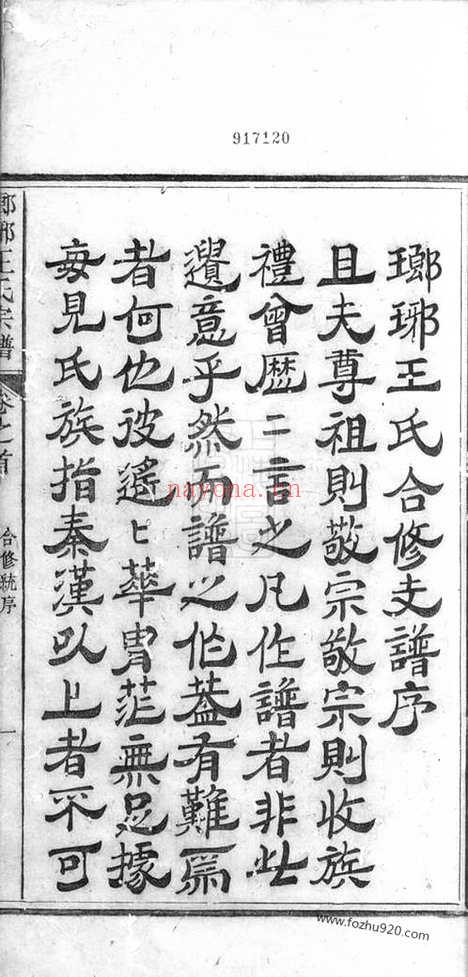 917120
瑯琊王氏合修支譜序
且夫尊祖則敬宗敬宗則收族
禮曾歷二言之凡作譜者非此
遺意乎然有譜之作蓋有難焉
者何也彼遙匕華胄茫無足據
每見氏族指秦漢以上者不可
瑯琊王氏宗譜
卷之首
合修統序
一
nayona.cn
www.fozhu920.com